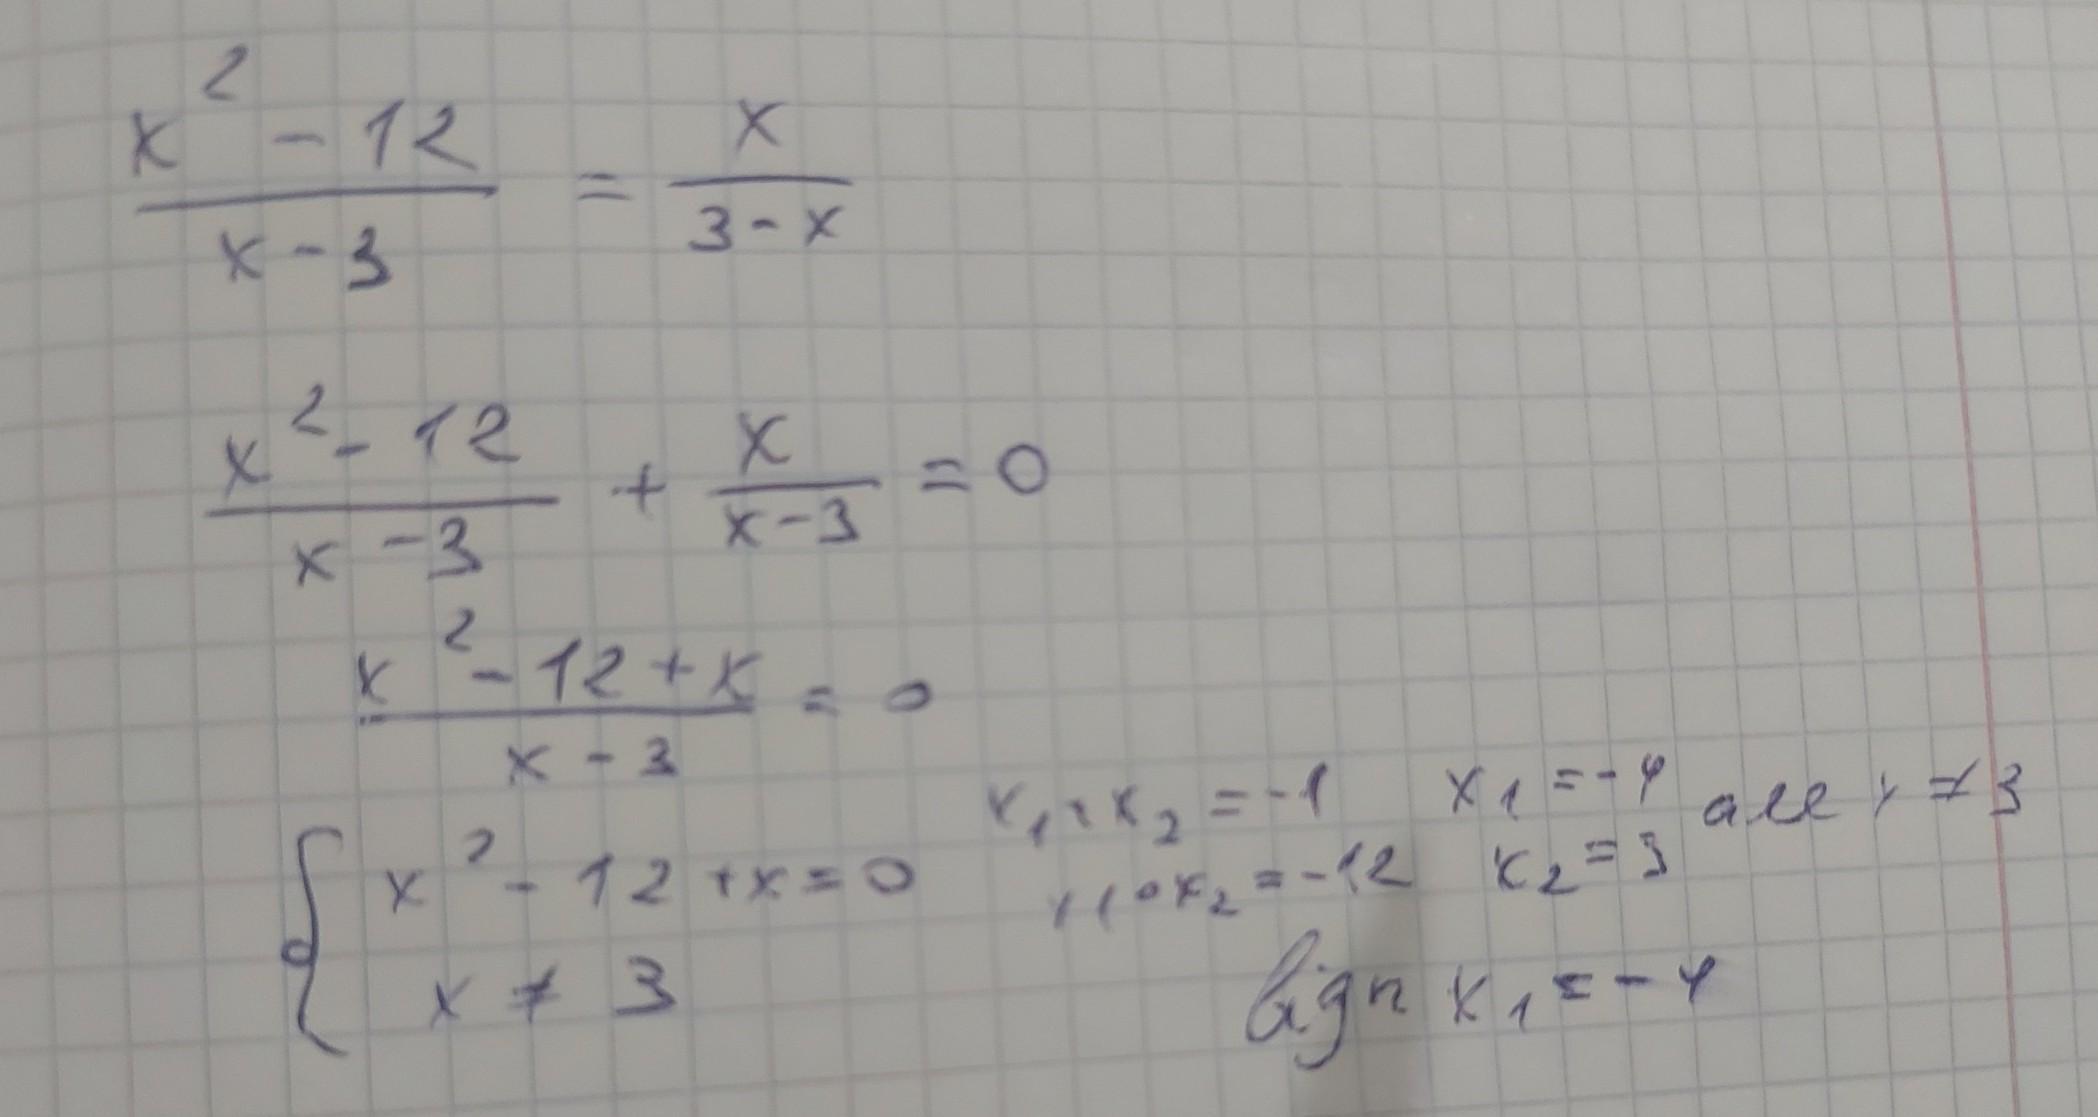 x² - 12 / x - 3 = x / 3 - x
x² - 12 / x - 3 + x / x - 3 = 0
x² - 12 + x / x - 3 = 0
{ x² - 12 + x = 0
x ≠ 3
x₁ + x₂ = -1
x₁ · x₂ = -12
x₁ = -4
x₂ = 3
але x ≠ 3
Відп x₁ = -4